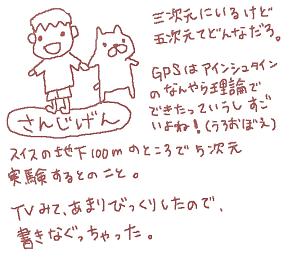 三次元にいるけど
五次元てどんなだろ。
GPSはアインシュタイン
のなんやら理論で
できたっていうし すご
いよね！(うろおぼえ)
さんじげん
スイスの地下100mのところで5次元
実験するとのこと。
TVみて、あまりびっくりしたので、
書きなぐっちゃった。